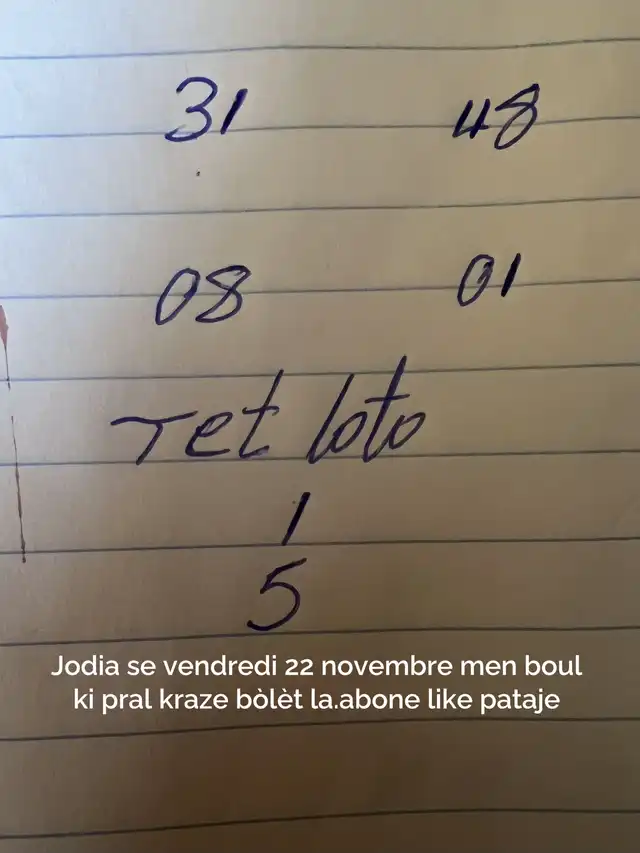 31 48
08 01
Tet loto
1
5
Jodia se vendredi 22 novembre men boul
ki pral kraze bòlèt la.abone like pataje